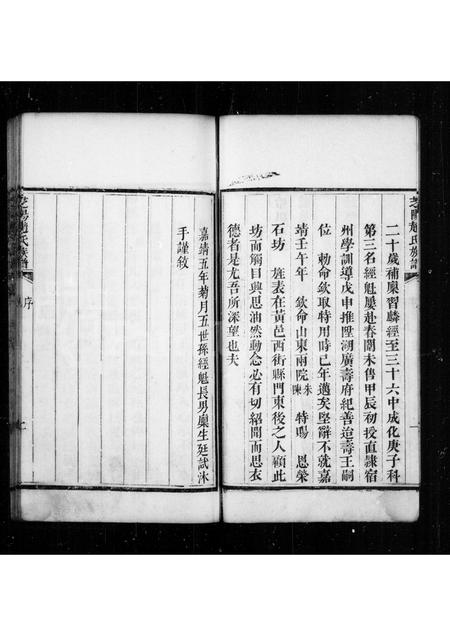 芝陽趙氏族譜
二十歲補廩習麟經至三十六中成化庚子科
第三名經魁屢赴春闈未售甲辰初授直隸宿
州學訓導戊申推陞湖廣壽府紀善迨壽王嗣
位 勅命欽取特用時已年邁矣堅辭不就嘉
靖壬午年 欽命山東兩院朱陳 特賜 恩榮
石坊 旌表在黃邑西街縣門東後之人顧此
坊而觸目興思油然動念必有切紹聞而思衣
德者是尤吾所深望也夫
嘉靖五年菊月五世孫經魁長男廩生廷試沐
手謹敘
芝陽趙氏族譜
序